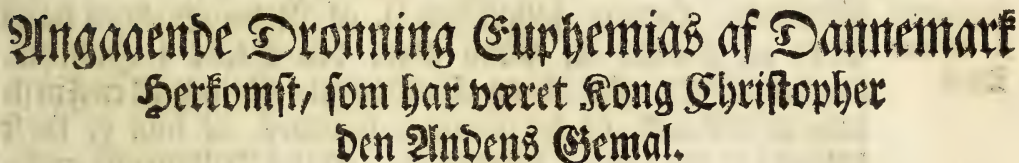 Angaaende Dronning Euphemias af Dannemark
Herkomst, som har været Kong Christopher
den Andens Gemal.